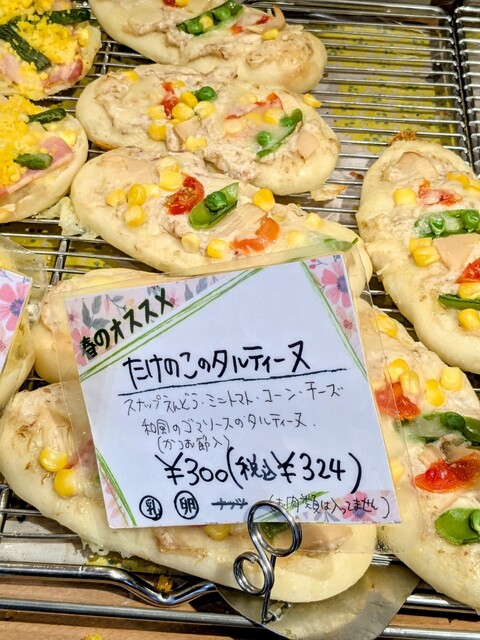 春のオススメ
たけのこのタルティーヌ
スナップえんどう・ミニトマト・コーン・チーズ
和風のゴマソースのタルティーヌ.
(かつお節入)
¥300(税込¥324)
乳 卵 ナッツ (お肉類は入ってません)